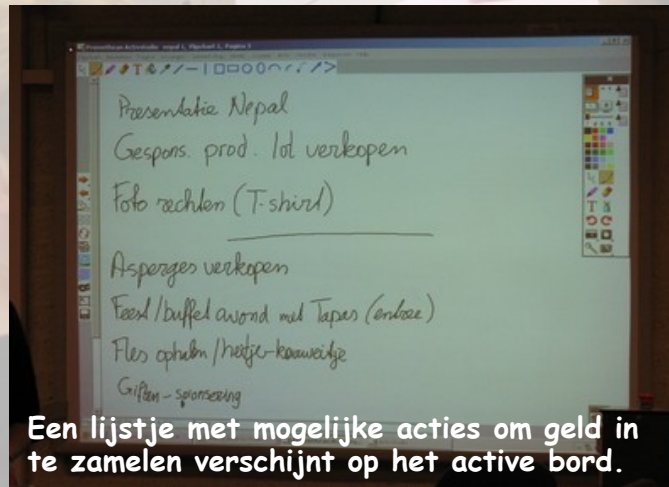 Promethean Activstudio nepal 1, Flipchart 2, Pagina 3
Presentatie Nepal
Gespons. prod. lot verkopen
Foto rechten (T-shirt)
Asperges verkopen
Feest/buffet avond met Tapas (entree)
Fles ophalen/heitje-karweitje
Giften-sponsering
Een lijstje met mogelijke acties om geld in
te zamelen verschijnt op het active bord.